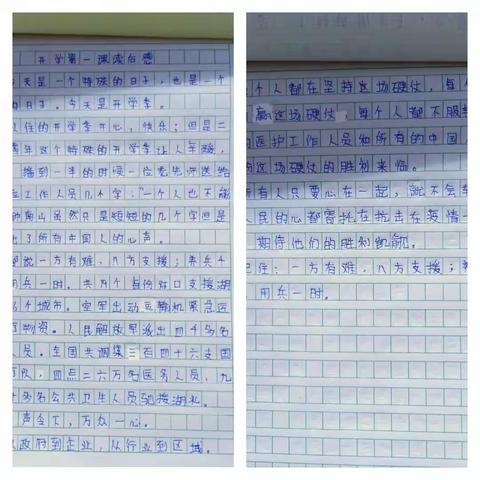 开学第一课读后感
今天是一个特殊的日子，也是一个
的日子。今天是开学季。
以往的开学季开心，快乐；但是二
年这个特殊的开学季让人年难，
播到一半的时候一位老先
工作人员几个字：一个人也不能
钟南山虽然只是短短的几个字但是
出了所有中国人的心声。
都说一方有难，八方支援；养兵千
用兵一时。共九个省份对口支援湖
多个城市。空军出动运输机紧急运
物资。人民解放军派出四千多名
人员。全国共调集三百四十六支国
队，四点二六万名医务人员，九
多名公共卫生人员驰援湖北。
声令下，万众一心。
从政府到企业，从行业到区域。
个人都在坚持这场硬仗，每个
赢这场硬仗，每个人都不服
医护工作人员和所有的中国
这场硬仗的胜利来临。
所有人只要心在一起，就不会
人民的心都寄托在抗击在疫情一
期待他们的胜利凯旋。
记住：一方有难，八方支援；养
用兵一时。